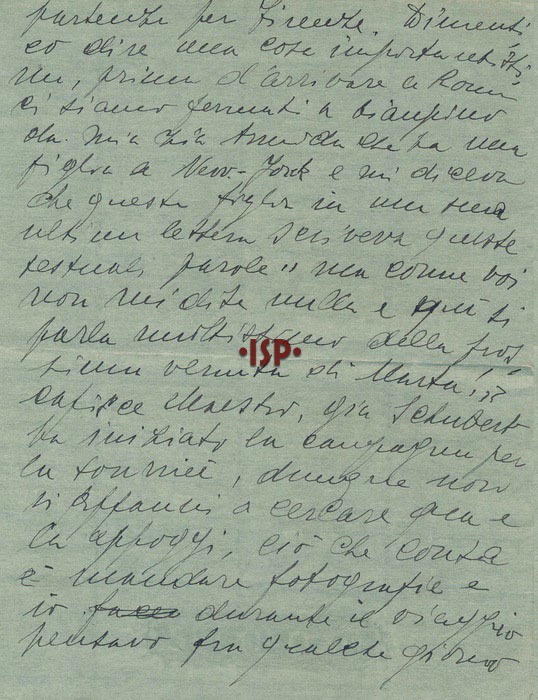 partenza per Firenze. Dimenti
co dire una cosa importantissi
ma, prima d'arrivare a Roma
ci siamo fermati a Ciampino
da mia zia Armida che ha una
figlia a New-York e mi diceva
che questa figlia in una sua
ultima lettera scriveva queste
testuali parole " ma come voi
non mi dite nulla e qui si
parla moltissimo della pros
sima venuta di Marta!"
Capisce Maestro, già Schubert
ha iniziato la campagna per
la tourneé, dunque non
si affanni a cercare qua e
là appoggi, ciò che conta
è mandare fotografie e
io durante il viaggio
pensavo fra qualche giorno
•ISP•